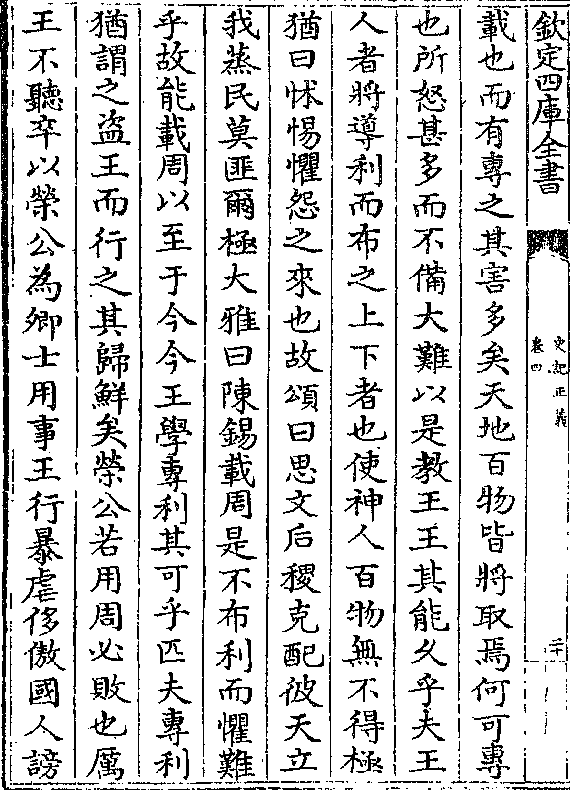 欽定四庫全書
史記正義
卷四
二十
載也而有專之其害多矣天地百物皆將取焉何可專
也所怒甚多而不備大難以是教王王其能久乎夫王
人者將導利而布之上下者也使神人百物無不得極
猶日怵惕懼怨之來也故頌曰思文后稷克配彼天立
我蒸民莫匪爾極大雅曰陳錫載周是不布利而懼難
乎故能載周以至于今今王學專利其可乎匹夫專利
猶謂之盗王而行之其歸鮮矣榮公若用周必敗也厲
王不聽卒以榮公為卿士用事王行暴虐侈傲國人謗